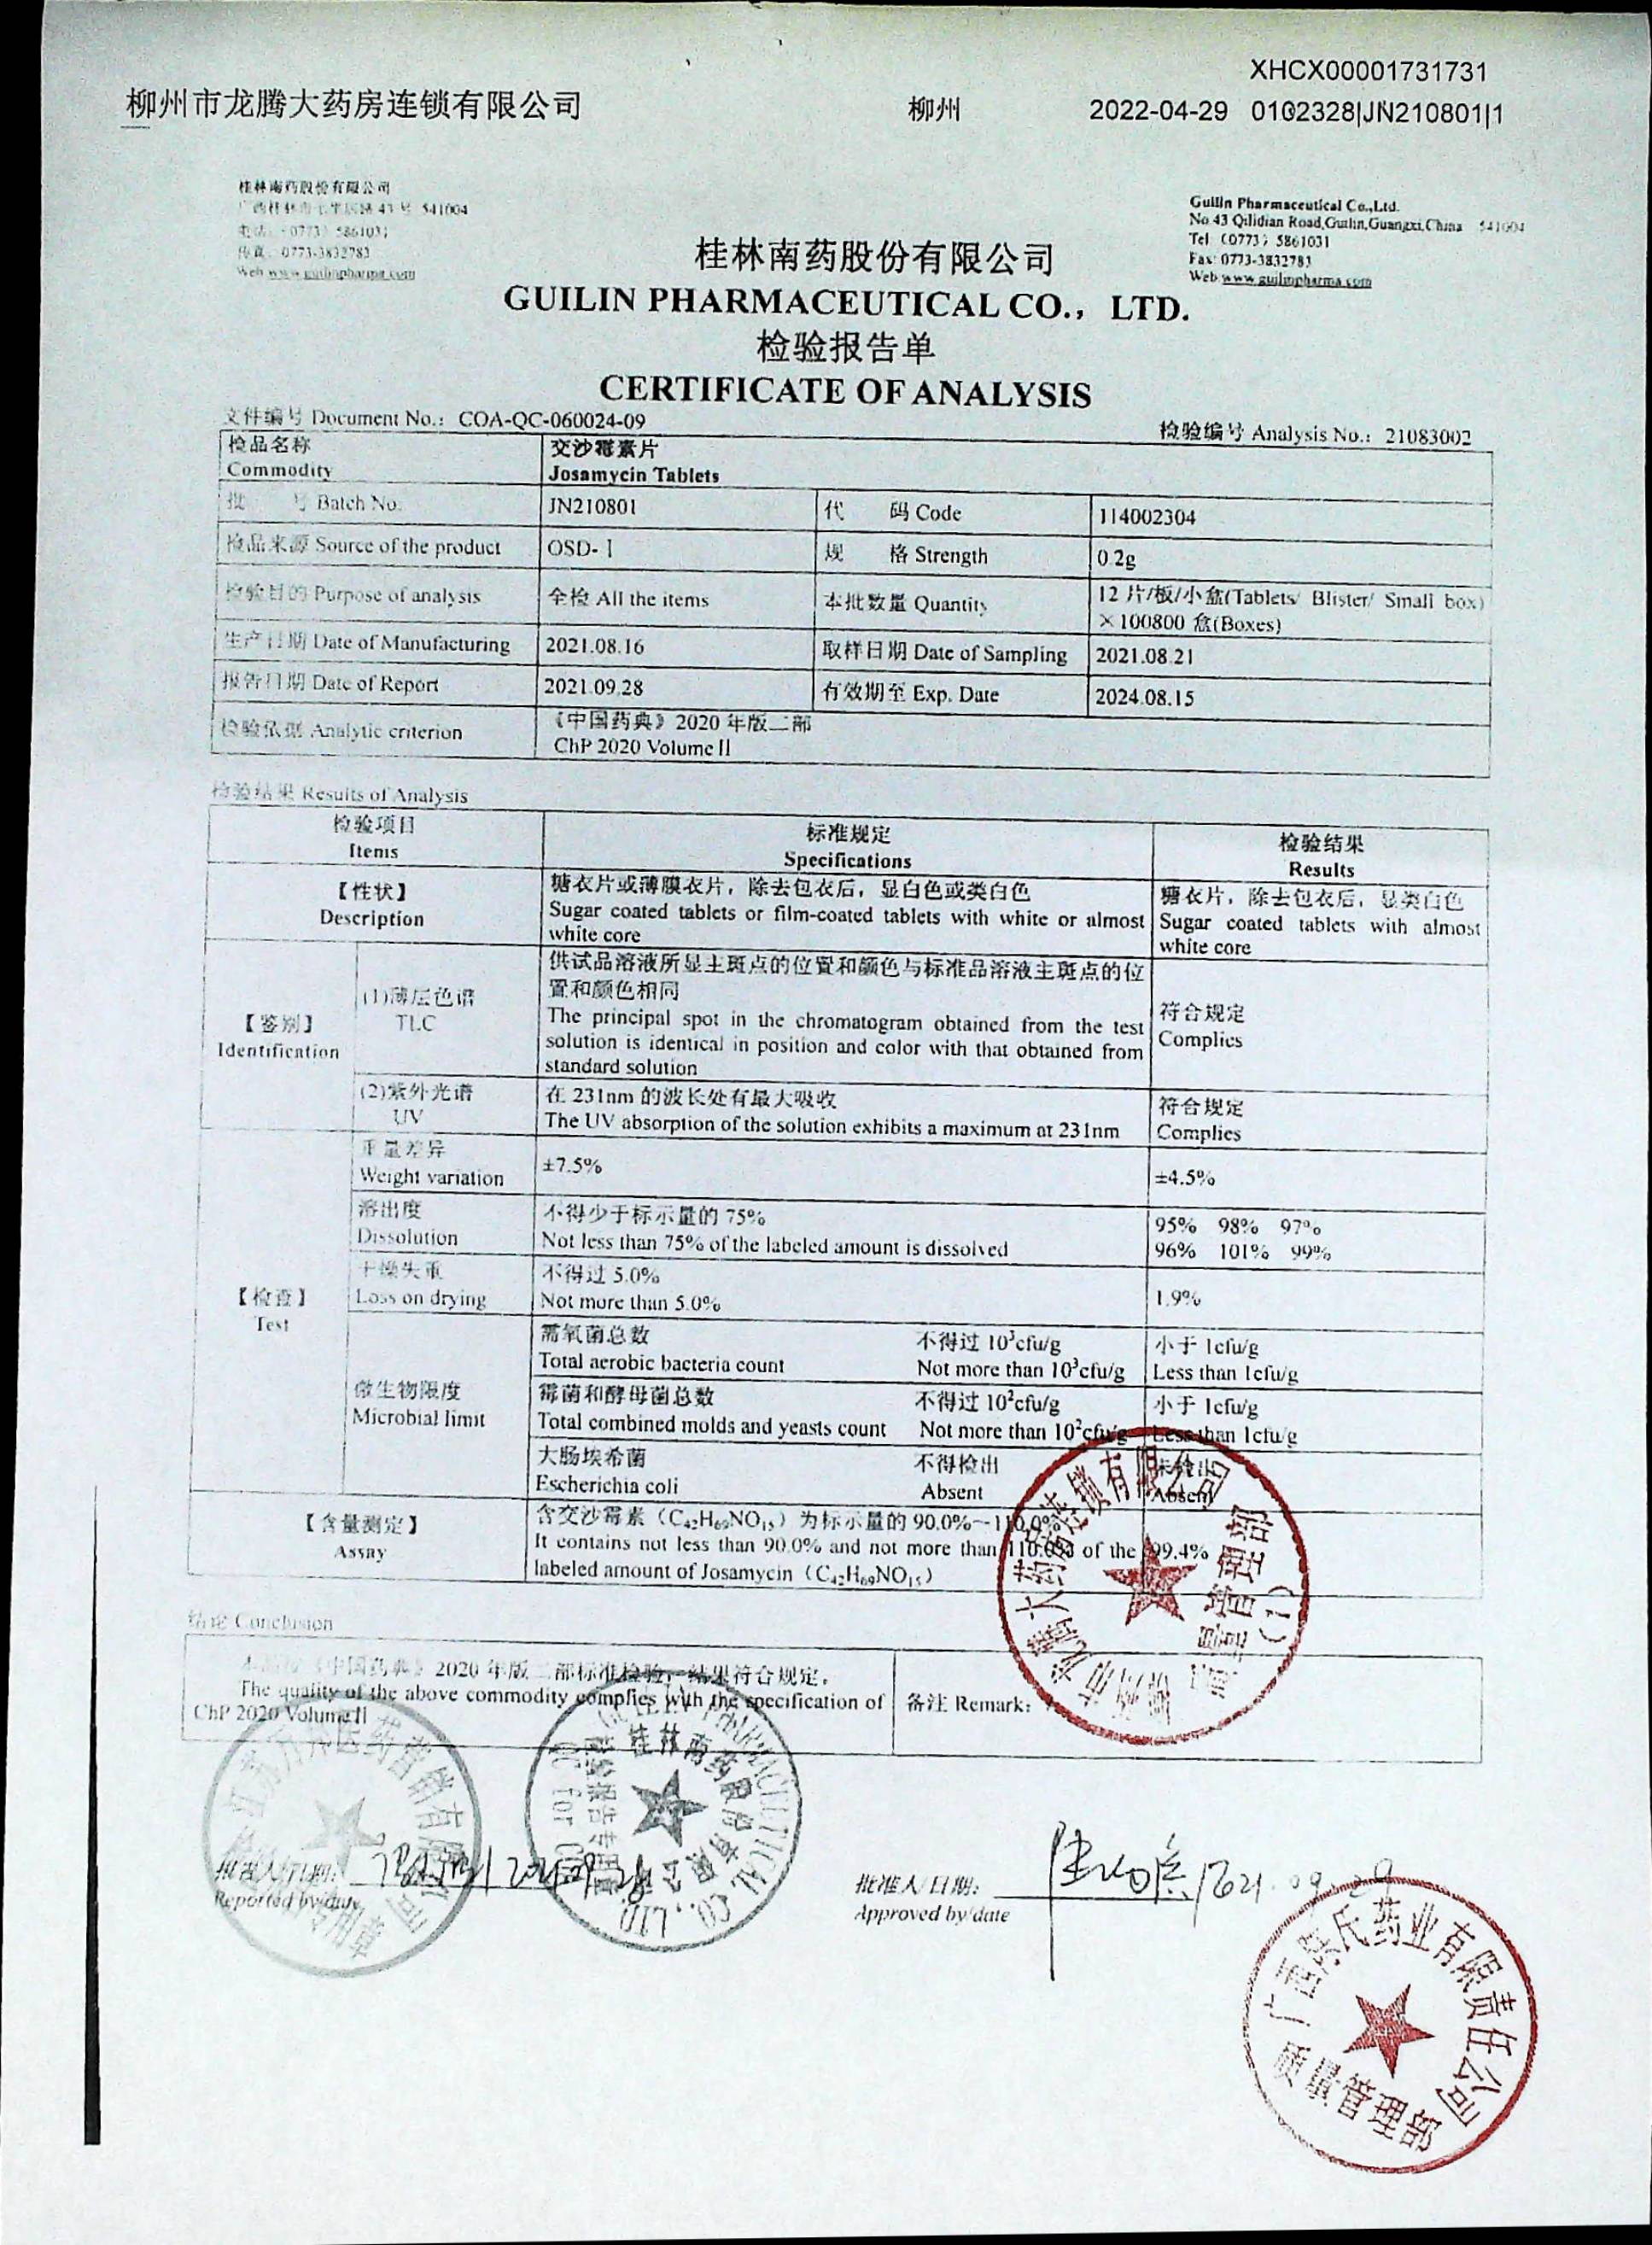 XHCX00001731731
柳州市龙腾大药房连锁有限公司 柳州 2022-04-29 0102328|JN210801|1
桂林南药股份有限公司
541004
0773-3832783
Guilin Pharmaceutical Co.,Ltd.
No.43 Qilidian Road,Guilin,Guangxi,China 541004
Tel: (0773) 5861031
Fax: 0773-3832783
Web:www.guilinpharma.com
桂林南药股份有限公司
GUILIN PHARMACEUTICAL CO., LTD.
检验报告单
CERTIFICATE OF ANALYSIS
文件编号 Document No.: COA-QC-060024-09
检验编号 Analysis No.: 21083002
检品名称 交沙霉素片
Commodity Josamycin Tablets
批 号 Batch No. JN210801 代 码 Code 114002304
检品来源 Source of the product OSD-Ⅰ 规 格 Strength 0.2g
检验目的 Purpose of analysis 全检 All the items 本批数量 Quantity 12 片/板/小盒(Tablets/ Blister/ Small box)
×100800 盒(Boxes)
生产日期 Date of Manufacturing 2021.08.16 取样日期 Date of Sampling 2021.08.21
报告日期 Date of Report 2021.09.28 有效期至 Exp. Date 2024.08.15
检验依据 Analytic criterion 《中国药典》2020 年版二部
ChP 2020 Volume II
检验结果 Results of Analysis
检验项目 标准规定 检验结果
Items Specifications Results
【性状】 糖衣片或薄膜衣片，除去包衣后，显白色或类白色 糖衣片，除去包衣后，显类白色
Description Sugar coated tablets or film-coated tablets with white or almost Sugar coated tablets with almost
white core white core
【鉴别】
Identification
(1)薄层色谱
TLC
供试品溶液所显主斑点的位置和颜色与标准品溶液主斑点的位
置和颜色相同
The principal spot in the chromatogram obtained from the test
solution is identical in position and color with that obtained from
standard solution
符合规定
Complies
(2)紫外光谱 在 231nm 的波长处有最大吸收 符合规定
UV The UV absorption of the solution exhibits a maximum at 231nm Complies
【检查】
Test
重量差异
Weight variation ±7.5% ±4.5%
溶出度 不得少于标示量的 75% 95% 98% 97%
Dissolution Not less than 75% of the labeled amount is dissolved 96% 101% 99%
干燥失重 不得过 5.0%
Loss on drying Not more than 5.0% 1.9%
微生物限度
Microbial limit
需氧菌总数 不得过 10³cfu/g 小于 1cfu/g
Total aerobic bacteria count Not more than 10³cfu/g Less than 1cfu/g
霉菌和酵母菌总数 不得过 10²cfu/g 小于 1cfu/g
Total combined molds and yeasts count Not more than 10²cfu/g Less than 1cfu/g
大肠埃希菌 不得检出 未检出
Escherichia coli Absent Absent
【含量测定】 含交沙霉素（C₄₂H₆₉NO₁₅）为标示量的 90.0%～110.0%
Assay It contains not less than 90.0% and not more than 110.0% of the 99.4%
labeled amount of Josamycin（C₄₂H₆₉NO₁₅）
结论 Conclusion
2020 年版二部标准检验，结果符合规定。
The quality of the above commodity complies with the specification of 备注 Remark:
ChP 2020 Volume II
大药房连锁有限公司
质量管理部
(1)
桂林南药股份有限公司
检验报告专用章
Reported by/date
批准人/日期:
Approved by/date
2021.09.29
广西洪氏药业有限责任公司
质量管理部